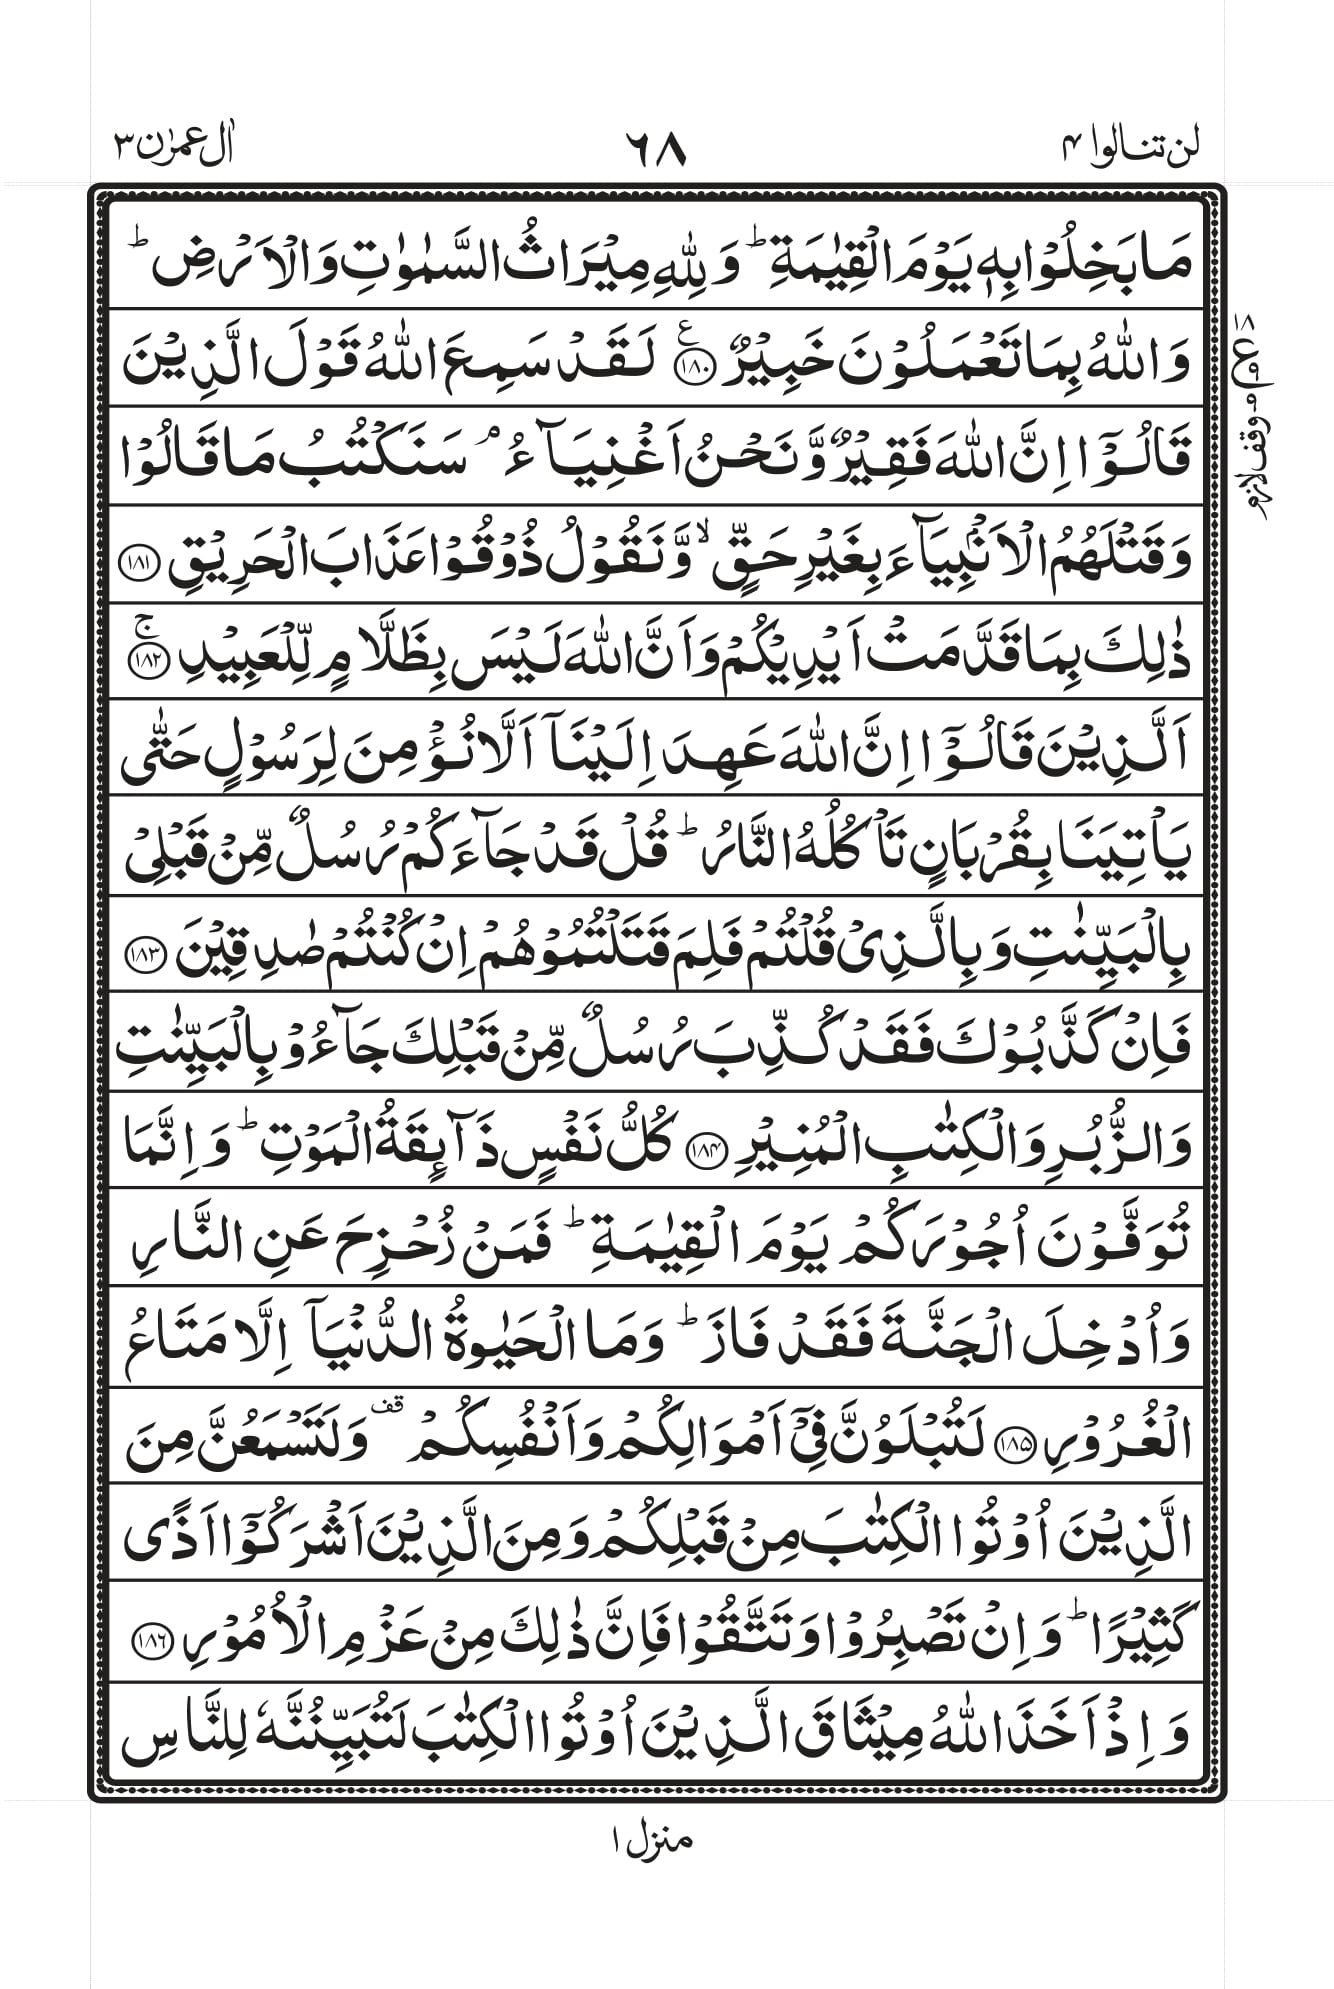 لن تنالوا ۴
٦٨
اٰل عمرٰن ۳
مَا بَخِلُوۡا بِهٖ يَوۡمَ الۡقِيٰمَةِ ؕ وَ لِلّٰهِ مِيۡرَاثُ السَّمٰوٰتِ وَالۡاَرۡضِ ؕ
وَاللّٰهُ بِمَا تَعۡمَلُوۡنَ خَبِيۡرٌ ﴿۱۸۰﴾ ع لَـقَدۡ سَمِعَ اللّٰهُ قَوۡلَ الَّذِيۡنَ
قَالُوۡۤا اِنَّ اللّٰهَ فَقِيۡرٌ وَّ نَحۡنُ اَغۡنِيَآءُ ۘ سَنَكۡتُبُ مَا قَالُوۡا
وَقَتۡلَهُمُ الۡاَنۡۢبِيَآءَ بِغَيۡرِ حَقٍّ ۙ وَّ نَقُوۡلُ ذُوۡقُوۡا عَذَابَ الۡحَرِيۡقِ ﴿۱۸۱﴾
ذٰلِكَ بِمَا قَدَّمَتۡ اَيۡدِيۡكُمۡ وَاَنَّ اللّٰهَ لَيۡسَ بِظَلَّامٍ لِّلۡعَبِيۡدِ ۚ ﴿۱۸۲﴾
اَلَّذِيۡنَ قَالُوۡۤا اِنَّ اللّٰهَ عَهِدَ اِلَيۡنَاۤ اَلَّا نُؤۡمِنَ لِرَسُوۡلٍ حَتّٰى
يَاۡتِيَنَا بِقُرۡبَانٍ تَاۡكُلُهُ النَّارُ ؕ قُلۡ قَدۡ جَآءَكُمۡ رُسُلٌ مِّنۡ قَبۡلِىۡ
بِالۡبَيِّنٰتِ وَبِالَّذِىۡ قُلۡتُمۡ فَلِمَ قَتَلۡتُمُوۡهُمۡ اِنۡ كُنۡتُمۡ صٰدِقِيۡنَ ﴿۱۸۳﴾
فَاِنۡ كَذَّبُوۡكَ فَقَدۡ كُذِّبَ رُسُلٌ مِّنۡ قَبۡلِكَ جَآءُوۡ بِالۡبَيِّنٰتِ
وَالزُّبُرِ وَالۡكِتٰبِ الۡمُنِيۡرِ ﴿۱۸۴﴾ كُلُّ نَفۡسٍ ذَآٮِٕقَةُ الۡمَوۡتِ ؕ وَاِنَّمَا
تُوَفَّوۡنَ اُجُوۡرَكُمۡ يَوۡمَ الۡقِيٰمَةِ ؕ فَمَنۡ زُحۡزِحَ عَنِ النَّارِ
وَاُدۡخِلَ الۡجَنَّةَ فَقَدۡ فَازَ ؕ وَمَا الۡحَيٰوةُ الدُّنۡيَاۤ اِلَّا مَتَاعُ
الۡغُرُوۡرِ ﴿۱۸۵﴾ لَتُبۡلَوُنَّ فِىۡۤ اَمۡوَالِكُمۡ وَاَنۡفُسِكُمۡ قف وَلَتَسۡمَعُنَّ مِنَ
الَّذِيۡنَ اُوۡتُوا الۡكِتٰبَ مِنۡ قَبۡلِكُمۡ وَمِنَ الَّذِيۡنَ اَشۡرَكُوۡۤا اَذًى
كَثِيۡرًا ؕ وَاِنۡ تَصۡبِرُوۡا وَتَتَّقُوۡا فَاِنَّ ذٰلِكَ مِنۡ عَزۡمِ الۡاُمُوۡرِ ﴿۱۸۶﴾
وَاِذۡ اَخَذَ اللّٰهُ مِيۡثَاقَ الَّذِيۡنَ اُوۡتُوا الۡكِتٰبَ لَتُبَيِّنُنَّهٗ لِلنَّاسِ
۱۸ ع ۹
وقف لازم
منزل ۱